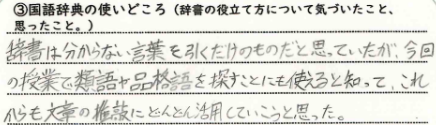 ③国語辞典の使いどころ（辞書の役立て方について気づいたこと、
思ったこと。）
辞書は分からない言葉を引くだけのものだと思っていたが、今回
の授業で類語や品格語を探すことにも使えると知って、これ
からも文章の推敲にどんどん活用していこうと思った。